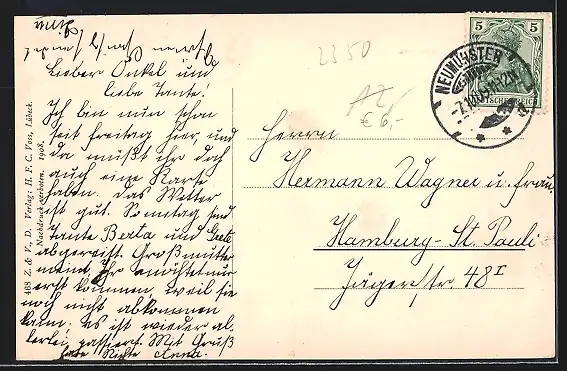 Lieber Onkel und
liebe Tante!
Ich bin nun schon
seit Freitag hier und
da müßt ihr doch
auch eine Karte
haben. Das Wetter
ist gut. Sonntag sind
Tante Berta und Grete
abgereist. Großmutter
meint, Ihr müßtet nur
erst kommen, weil sie
noch nicht abkommen
kann. Es ist wieder al-
lerlei passiert. Mit Gruß
Eure Nichte Anna.
468 Z. & V., D. Verlag: H. F. C. Voss, Lübeck.
Nachdruck verboten. 1908.
2350
€ 6,-
5 5
DEUTSCHES REICH
NEUMÜNSTER
Herrn
Hermann Wagner u. Frau.
Hamburg-St. Pauli
Jägerstr. 48 I